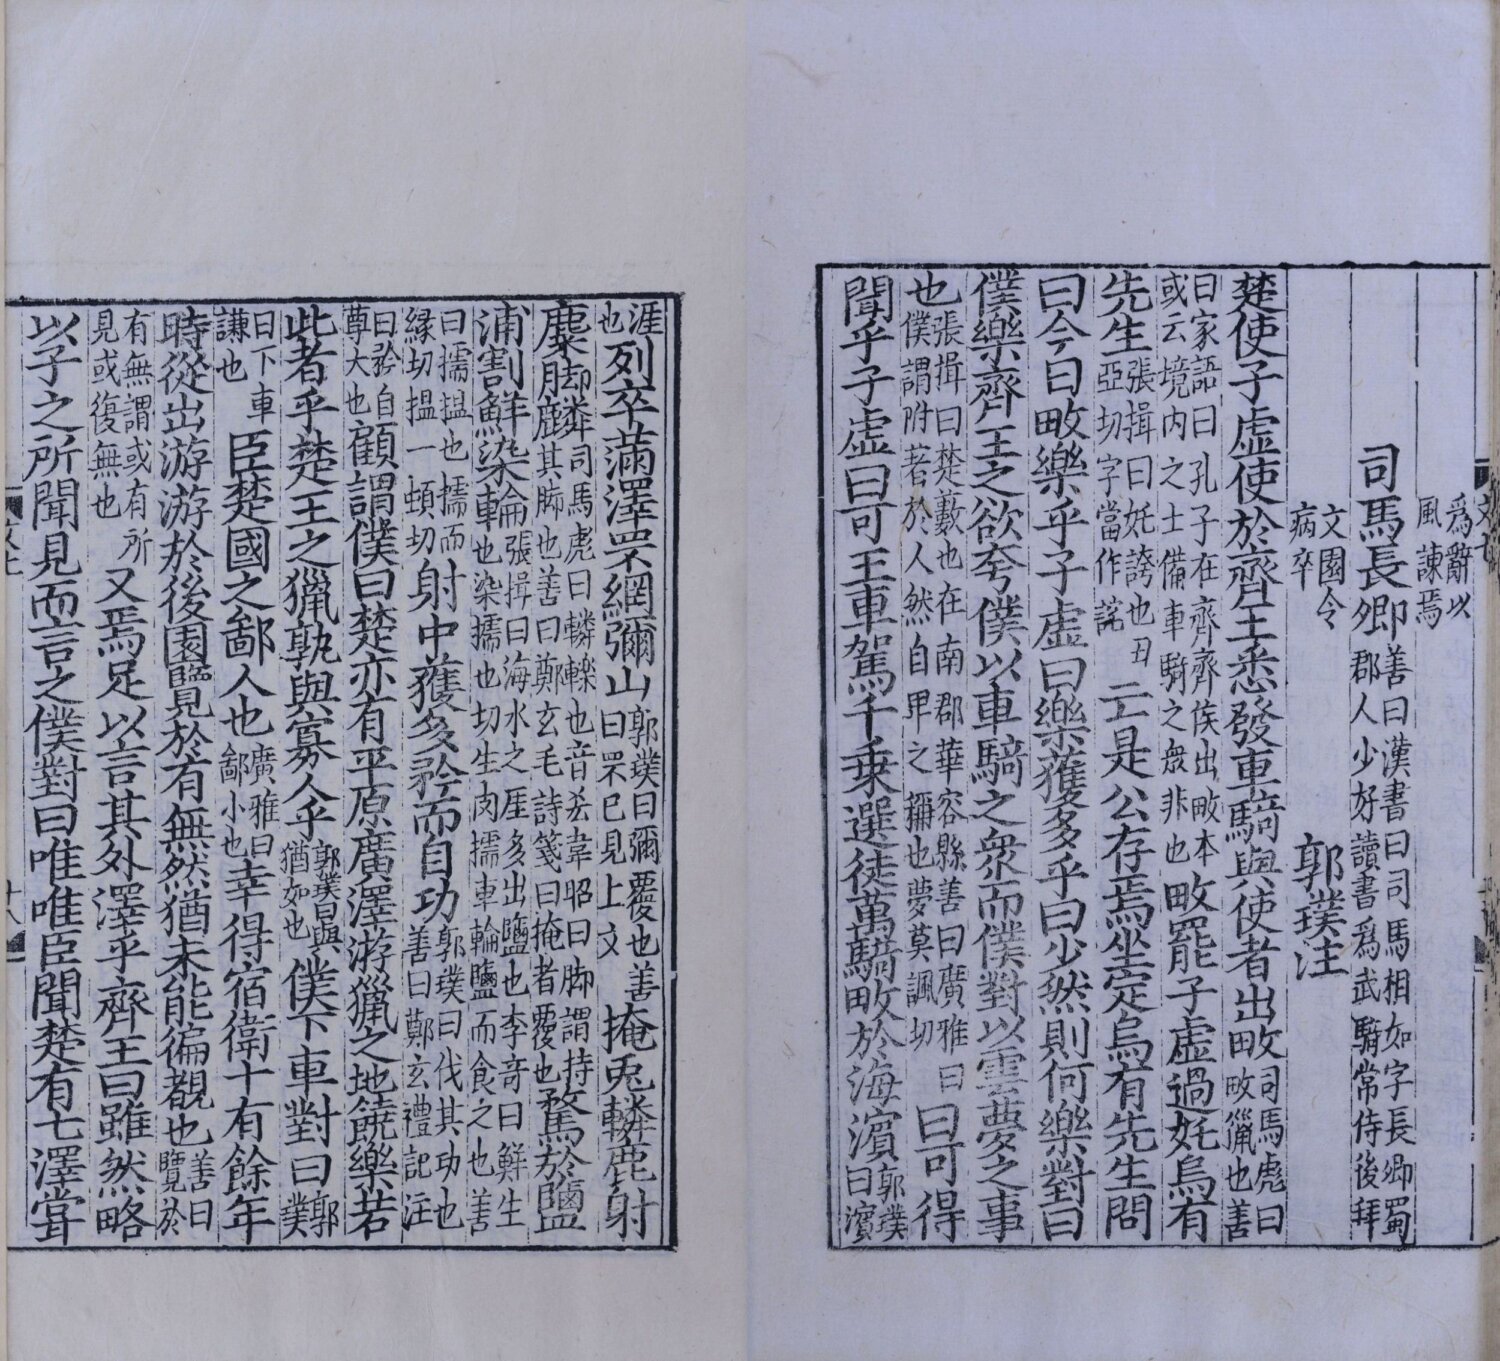 爲辭以風諫焉
司馬長卿善曰漢書曰司馬相如字長卿蜀郡人少好讀書爲武騎常侍後拜
文園令病卒 郭璞注
楚使子虛使於齊王悉發車騎與使者出畋司馬彪曰畋獵也善
曰家語曰孔子在齊齊侯出畋本或云境内之士備車騎之衆非也畋罷子虛過奼烏有
先生張揖曰奼誇也丑亞切字當作詫亡是公存焉坐定烏有先生問
曰今日畋樂乎子虛曰樂獲多乎曰少然則何樂對曰
僕樂齊王之欲夸僕以車騎之衆而僕對以雲夢之事
也張揖曰楚藪也在南郡華容縣善曰廣雅曰僕謂附著於人然自卑之稱也夢莫諷切曰可得
聞乎子虛曰可王車駕千乘選徒萬騎畋於海濱郭璞曰濱
涯也列卒滿澤罘網彌山郭璞曰彌覆也善曰罘已見上文掩兎轔鹿射
麋脚麟司馬彪曰轔轢也音吝韋昭曰脚謂持其脚也善曰鄭玄毛詩箋曰掩者覆也騖於鹽
浦割鮮染輪張揖曰海水之厓多出鹽也李奇曰鮮生也染擩也切生肉擩車輪鹽而食之也善
曰擩揾也擩而緣切揾一頓切射中獲多矜而自功郭璞曰伐其功也善曰鄭玄禮記注
曰矜自尊大也顧謂僕曰楚亦有平原廣澤游獵之地饒樂若
此者乎楚王之獵孰與寡人乎郭璞曰與猶如也僕下車對曰郭璞
曰下車謙也臣楚國之鄙人也廣雅曰鄙小也幸得宿衛十有餘年
時從出游游於後園覽於有無然猶未能徧覩也善曰覽於
有無謂或有所見或復無也又焉足以言其外澤乎齊王曰雖然略
以子之所聞見而言之僕對曰唯唯臣聞楚有七澤甞
十八